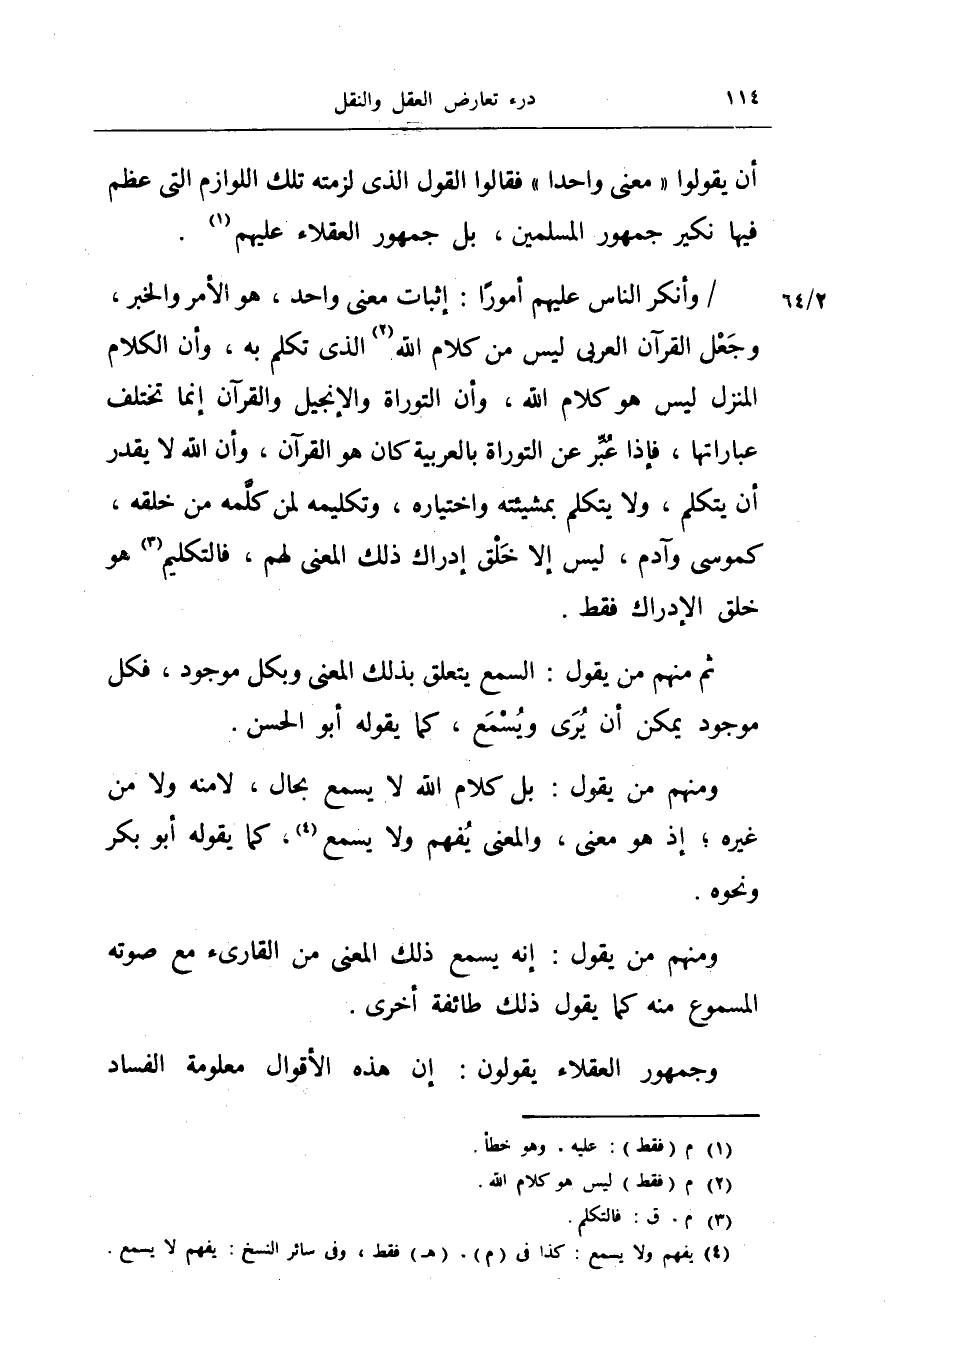 ١١٤ درء تعارض العقل والنقل
أن يقولوا « معنى واحدا » فقالوا القول الذى لزمته تلك اللوازم التى عظم
فيها نكير جمهور المسلمين ، بل جمهور العقلاء عليهم(١) .
٦٤/٢ / وأنكر الناس عليهم أمورًا : إثبات معنى واحد ، هو الأمر والخبر ،
وجَعْل القرآن العربى ليس من كلام الله(٢) الذى تكلم به ، وأن الكلام
المنزل ليس هو كلام الله ، وأن التوراة والإنجيل والقرآن إنما تختلف
عباراتها ، فإذا عُبِّر عن التوراة بالعربية كان هو القرآن ، وأن الله لا يقدر
أن يتكلم ، ولا يتكلم بمشيئته واختياره ، وتكليمه لمن كلَّمه من خلقه ،
كموسى وآدم ، ليس إلا خَلْق إدراك ذلك المعنى لهم ، فالتكليم(٣) هو
خلق الإدراك فقط .
ثم منهم من يقول : السمع يتعلق بذلك المعنى وبكل موجود ، فكل
موجود يمكن أن يُرَى ويُسْمَع ، كما يقوله أبو الحسن .
ومنهم من يقول : بل كلام الله لا يسمع بحال ، لامنه ولا من
غيره ؛ إذ هو معنى ، والمعنى يُفهم ولا يسمع(٤) ، كما يقوله أبو بكر
ونحوه .
ومنهم من يقول : إنه يسمع ذلك المعنى من القارىء مع صوته
المسموع منه كما يقول ذلك طائفة أخرى .
وجمهور العقلاء يقولون : إن هذه الأقوال معلومة الفساد
(١) م ( فقط ) : عليه . وهو خطأ .
(٢) م ( فقط ) ليس هو كلام الله .
(٣) م . ق : فالتكلم .
(٤) يفهم ولا يسمع : كذا فى ( م ) . ( هـ ) فقط ، وفى سائر النسخ : يفهم لا يسمع .